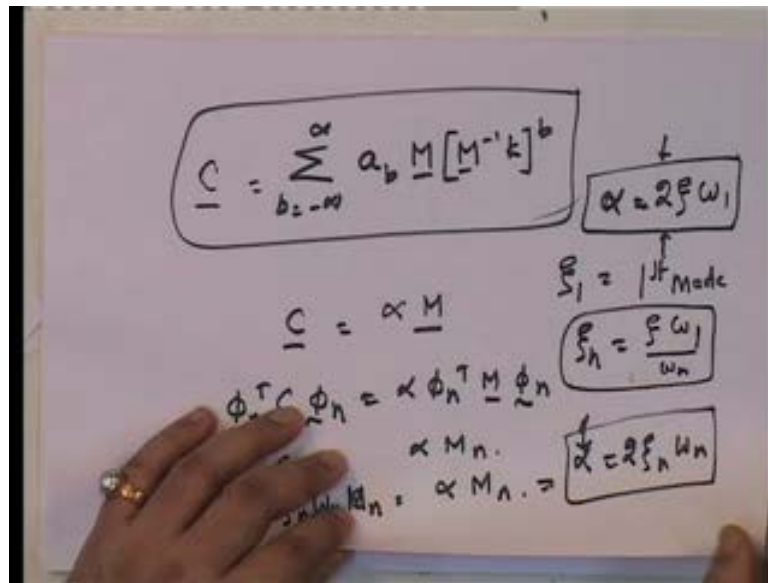 C = ∑ a_b M [M⁻¹ k]^b
∝
b = -∞
α = 2ξω₁
ξ₁ = 1st Mode
C = α M
ξₙ = ξω₁/ωₙ
C φₙ = α φₙᵀ M φₙ
α Mₙ.
= α Mₙ. = α = 2ξₙωₙ